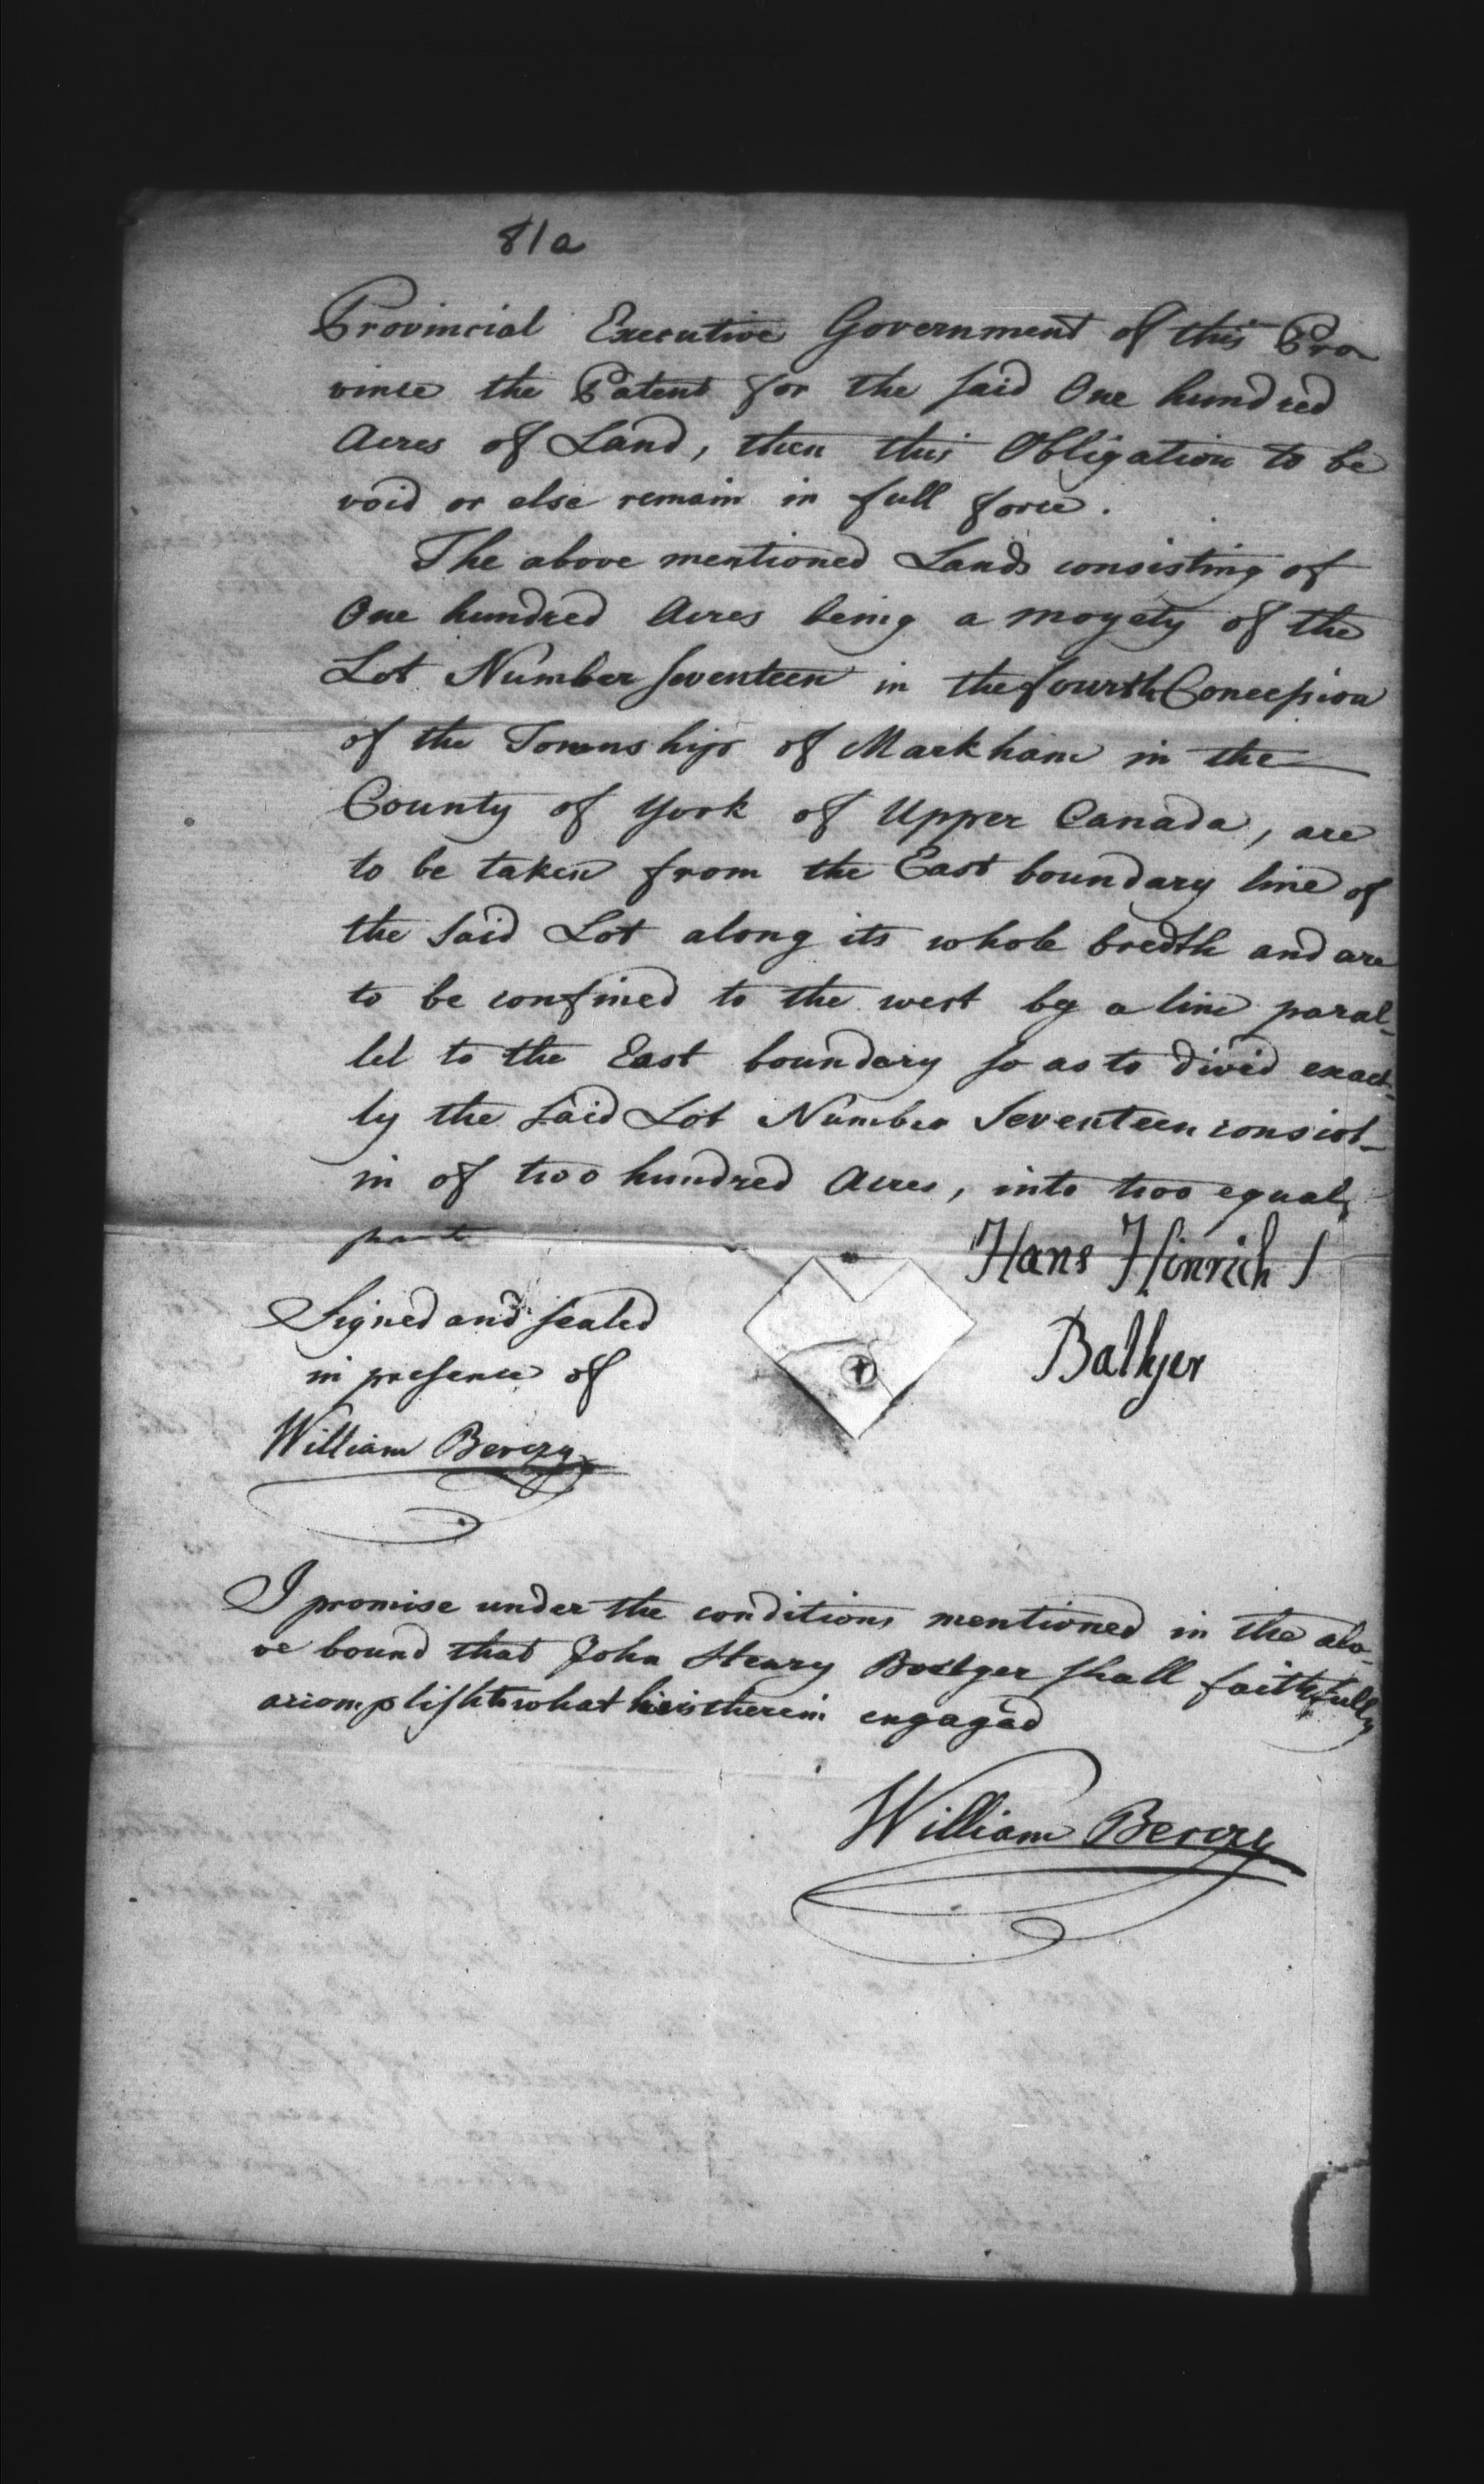 81a
Provincial Executive Government of this Pro
vince the Patent for the said One hundred
Acres of Land, then this Obligation to be
void or else remain in full force.
The above mentioned Lands consisting of
One hundred Acres being a moyety of the
Lot Number seventeen in the fourth Concession
of the Township of Markham in the
County of York of Upper Canada, are
to be taken from the East boundary line of
the said Lot along its whole bredth and are
to be confined to the west by a line paral-
lel to the East boundary so as to divid exact-
ly the said Lot Number Seventeen consist-
in of two hundred Acres, into two equal
part
Hans Hinrich
Signed and sealed
in presence of
William Berczy
I promise under the conditions mentioned in the abo-
ve bound that John Henry shall faithfully
accomplish to what he is therein engaged
William Berczy